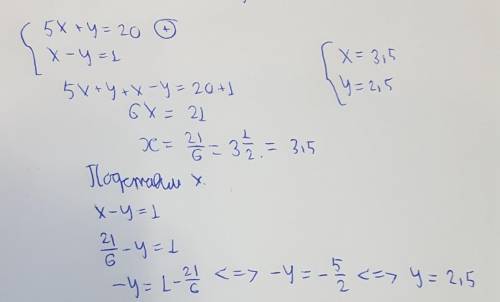 5x+y=20 ⊕
x-y=1
5x+y+x-y=20+1
6x= 21
x= 21/6 = 3 1/2 = 3,5
Подставим x.
x-y=1
21/6 -y=1
-y=1- 21/6 <=> -y=- 5/2 <=> y= 2,5
x= 3,5
y= 2,5